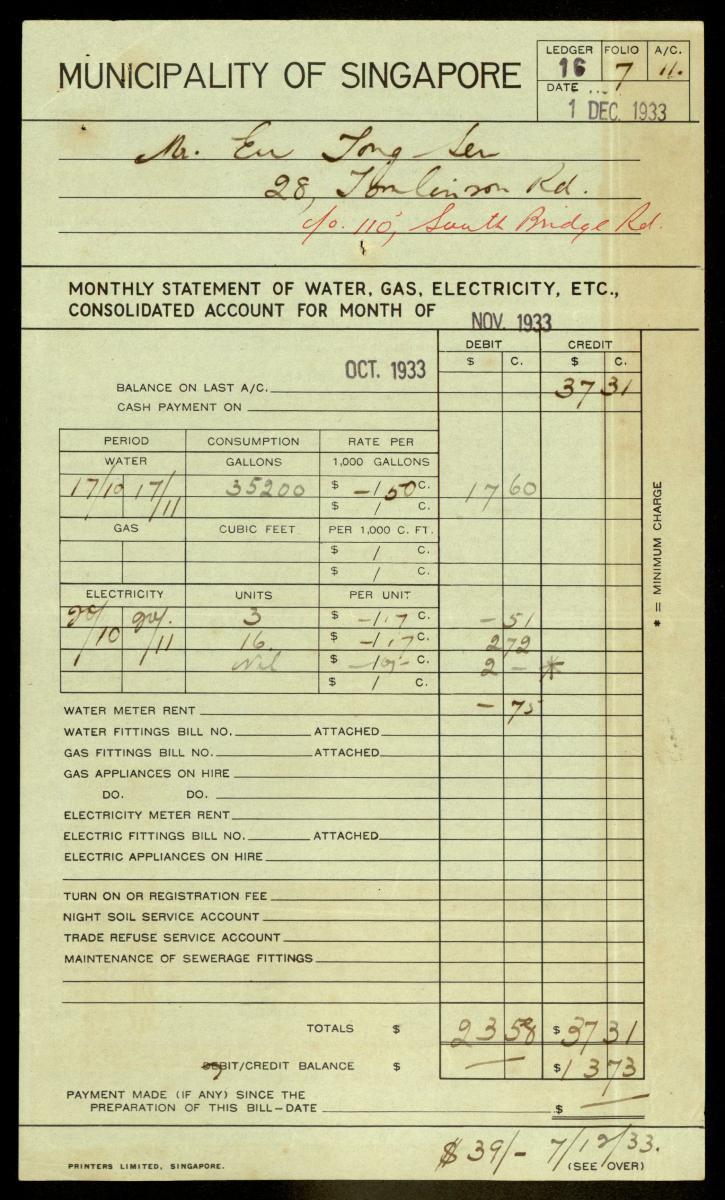 LEDGER FOLIO A/C.
16 7 11.
MUNICIPALITY OF SINGAPORE
DATE
1 DEC. 1933
Mr. Eu Tong Sen
28, Tomlinson Rd.
c/o. 110, South Bridge Rd.
MONTHLY STATEMENT OF WATER, GAS, ELECTRICITY, ETC.,
CONSOLIDATED ACCOUNT FOR MONTH OF NOV. 1933
DEBIT CREDIT
$ C. $ C.
OCT. 1933
BALANCE ON LAST A/C. 37 31
CASH PAYMENT ON
PERIOD CONSUMPTION RATE PER
WATER GALLONS 1,000 GALLONS
17/10 17/11 35200 $ -/50 C. 17 60
$ / C.
GAS CUBIC FEET PER 1,000 C. FT.
$ / C.
$ / C.
ELECTRICITY UNITS PER UNIT
20/10 20/11 3 $ -/17 C. - 51
16 $ -/17 C. 2 72
Nil $ C. 2 - *
$ / C.
* = MINIMUM CHARGE
WATER METER RENT - 75
WATER FITTINGS BILL NO. ATTACHED
GAS FITTINGS BILL NO. ATTACHED
GAS APPLIANCES ON HIRE
DO. DO.
ELECTRICITY METER RENT
ELECTRIC FITTINGS BILL NO. ATTACHED
ELECTRIC APPLIANCES ON HIRE
TURN ON OR REGISTRATION FEE
NIGHT SOIL SERVICE ACCOUNT
TRADE REFUSE SERVICE ACCOUNT
MAINTENANCE OF SEWERAGE FITTINGS
TOTALS $ 23 58 $ 37 31
DEBIT/CREDIT BALANCE $ — $ 13 73
PAYMENT MADE (IF ANY) SINCE THE
PREPARATION OF THIS BILL—DATE $ —
$39/- 7/12/33.
PRINTERS LIMITED, SINGAPORE. (SEE OVER)